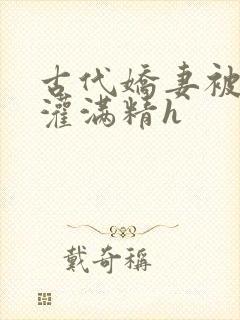 古代嬌妻被
灌满精h
戴奇稱